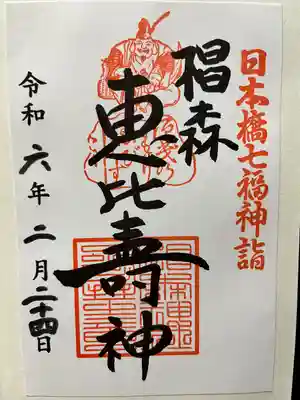 日本橋七福神詣
椙森
恵比壽神
令和六年二月二十四日